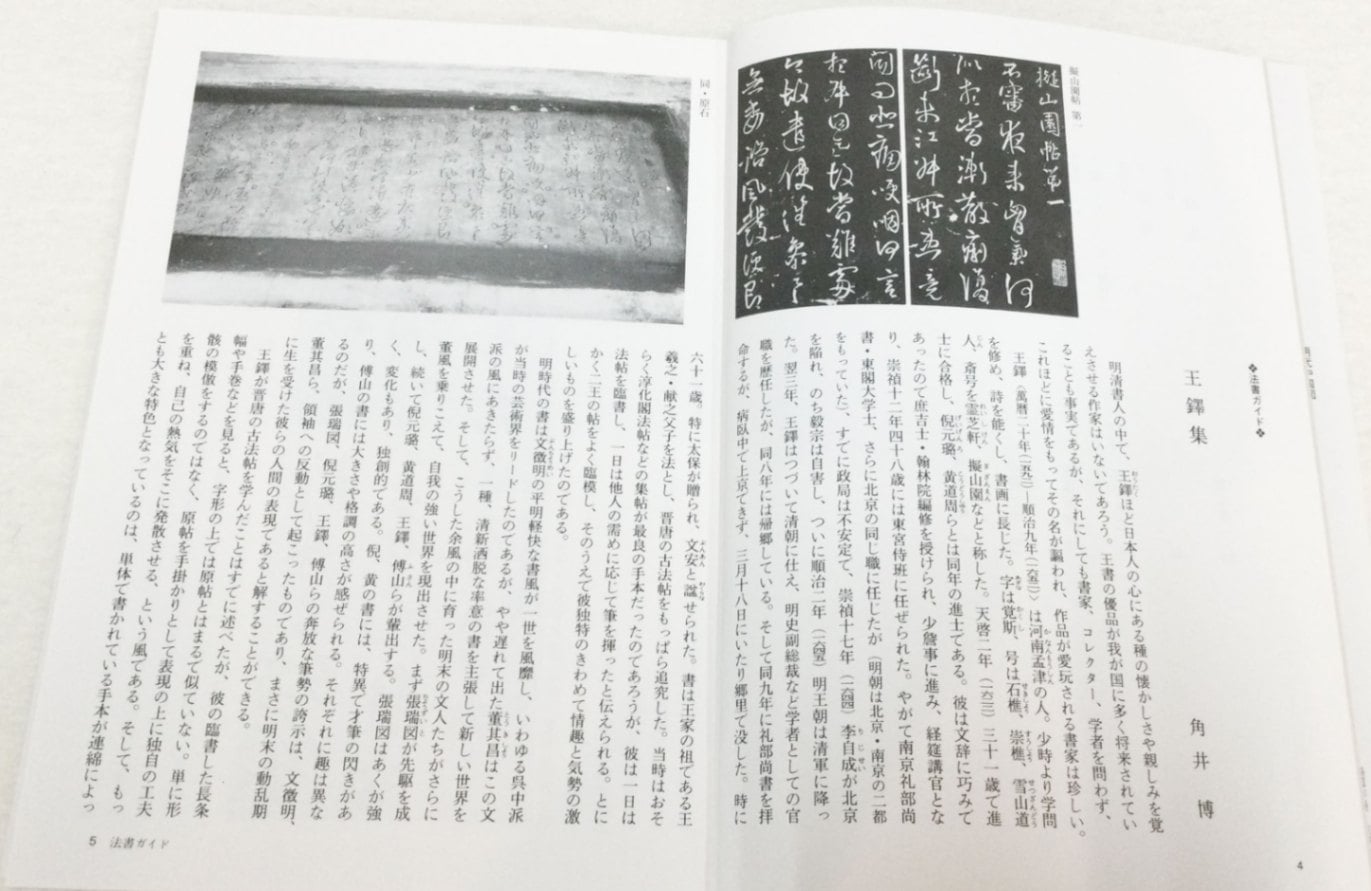 ❖法書ガイド❖
王鐸集
角井博
明清書人の中て、王鐸ほど日本人の心にある種の懐かしさや親しみを覚
えさせる作家はいないてあろう。王書の優品が我が国に多く将来されてい
ることも事実てあるが、それにしても書家、コレクター、学者を問わず、
これほどに愛情をもってその名が謳われ、作品が愛玩される書家は珍しい。
王鐸（萬曆二十年（一五九二）―順治九年（一六五二））は河南孟津の人。少時より学問
を修め、詩を能くし、書画に長じた。字は覚斯、号は石樵、崇樵、雪山道
人、斎号を霊芝軒、擬山園などと称した。天啓二年（一六二二）三十一歳て進
士に合格し、倪元璐、黄道周らとは同年の進士てある。彼は文辞に巧みて
あったのて庶吉士・翰林院編修を授けられ、少詹事に進み、経筵講官とな
り、崇禎十二年四十八歳には東宮侍班に任ぜられた。やがて南京礼部尚
書・東閣大学士、さらに北京の同じ職に任じたが（明朝は北京・南京の二都
をもっていた）、すでに政局は不安定て、崇禎十七年（一六四四）李自成が北京
を陥れ、のち毅宗は自害し、ついに順治二年（一六四五）明王朝は清軍に降っ
た。翌三年、王鐸はつづいて清朝に仕え、明史副総裁など学者としての官
職を歴任したが、同八年には帰郷している。そして同九年に礼部尚書を拝
命するが、病臥中て上京てきず、三月十八日にいたり郷里て没した。時に
擬山園帖 第一
擬山園帖第一
4
同・原石
六十一歳。特に太保が贈られ、文安と諡せられた。書は王家の祖てある王
羲之・献之父子を法とし、晋唐の古法帖をもっぱら追究した。当時はおそ
らく淳化閣法帖などの集帖が最良の手本だったのてあろうが、彼は一日は
法帖を臨書し、一日は他人の需めに応じて筆を揮ったと伝えられる。とに
かく二王の帖をよく臨模し、そのうえて彼独特のきわめて情趣と気勢の激
しいものを盛り上げたのてある。
明時代の書は文徴明の平明軽快な書風が一世を風靡し、いわゆる呉中派
が当時の芸術界をリードしたのてあるが、やや遅れて出た董其昌はこの文
派の風にあきたらず、一種、清新洒脱な率意の書を主張して新しい世界を
展開させた。そして、こうした余風の中に育った明末の文人たちがさらに
董風を乗りこえて、自我の強い世界を現出させた。まず張瑞図が先駆を成
し、続いて倪元璐、黄道周、王鐸、傅山らが輩出する。張瑞図はあくが強
く、変化もあり、独創的てある。倪、黄の書には、特異て才筆の閃きがあ
り、傅山の書には大きさや格調の高さが感ぜられる。それぞれに趣は異な
るのだが、張瑞図、倪元璐、王鐸、傅山らの奔放な筆勢の誇示は、文徴明、
董其昌ら、領袖への反動として起こったものてあり、まさに明末の動乱期
に生を受けた彼らの人間の表現てあると解することがてきる。
王鐸が晋唐の古法帖を学んだことはすてに述べたが、彼の臨書した長条
幅や手巻などを見ると、字形の上ては原帖とはまるて似ていない。単に形
骸の模倣をするのてはなく、原帖を手掛かりとして表現の上に独自の工夫
を重ね、自己の熱気をそこに発散させる、という風てある。そして、もっ
とも大きな特色となっているのは、単体て書かれている手本が連綿によっ
5 法書ガイド